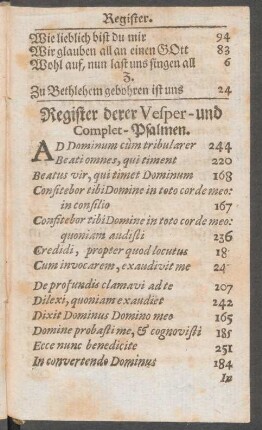 Register.
Wie lieblich bist du mir 94
Wir glauben all an einen GOtt 83
Wohl auf, nun last uns singen all 6
Z.
Zu Bethlehem gebohren ist uns 24
Register derer Vesper-und
Complet-Psalmen.
AD Dominum cùm tribularer 244
Beati omnes, qui timent 220
Beatus vir, qui timet Dominum 168
Confitebor tibi Domine in toto corde meo:
in consilio 167
Confitebor tibi Domine in toto corde meo:
quoniam audisti 236
Credidi, propter quod locutus 18
Cum invocarem, exaudivit me 24
De profundis clamavi ad te 207
Dilexi, quoniam exaudiet 242
Dixit Dominus Domino meo 165
Domine probasti me, & cognovisti 185
Ecce nunc benedicite 251
In convertendo Dominus 184
In